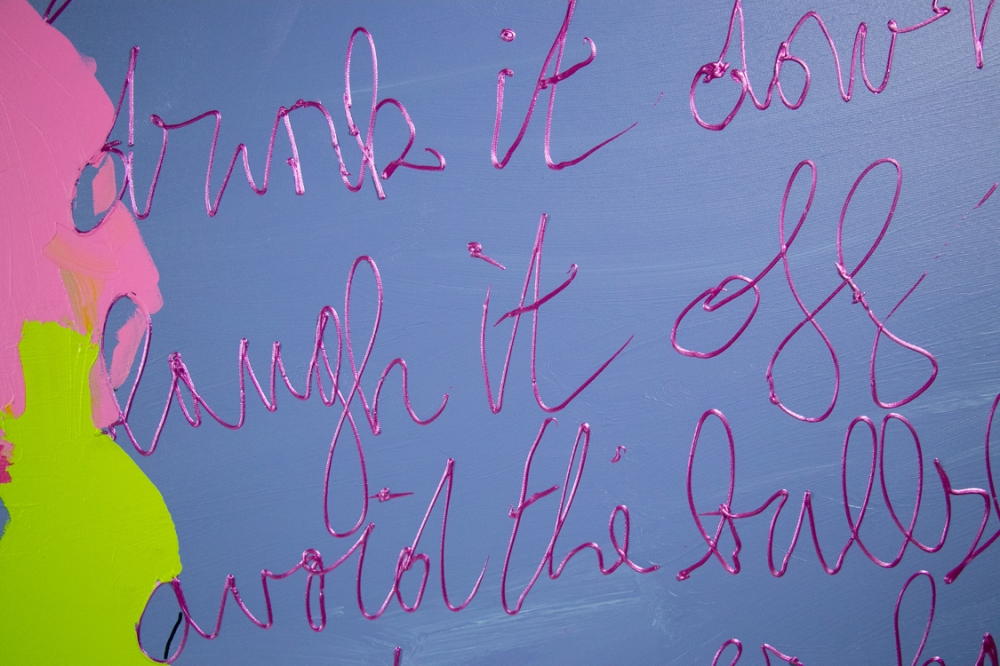 drink it down
laugh it off
avoid the bulls